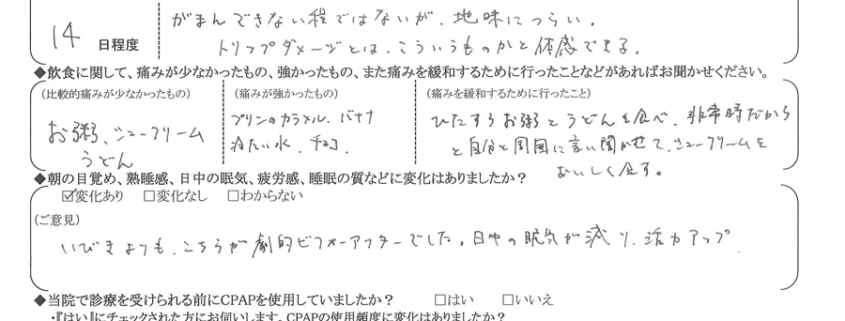 がまんできない程ではないが、地味につらい。
14 日程度
トリップダメージとは、こういうものかと体感できる。
◆飲食に関して、痛みが少なかったもの、強かったもの、また痛みを緩和するために行ったことなどがあればお聞かせください。
(比較的痛みが少なかったもの)
お粥、シュークリーム
うどん
(痛みが強かったもの)
プリンのカラメル、バナナ
冷たい水、チョコ、
(痛みを緩和するために行ったこと)
ひたすらお粥とうどんを食べ、非常時だから
と自分と周囲に言い聞かせて、シュークリームを
おいしく食す。
◆朝の目覚め、熟睡感、日中の眠気、疲労感、睡眠の質などに変化はありましたか?
☑変化あり □変化なし □わからない
(ご意見)
いびきよりも、こちらが劇的ビフォーアフターでした。日中の眠気が減り、活力アップ
◆当院で診療を受けられる前にCPAPを使用していましたか? □はい □いいえ
・『はい』にチェックされた方にお伺いします。CPAPの使用頻度に変化はありましたか?